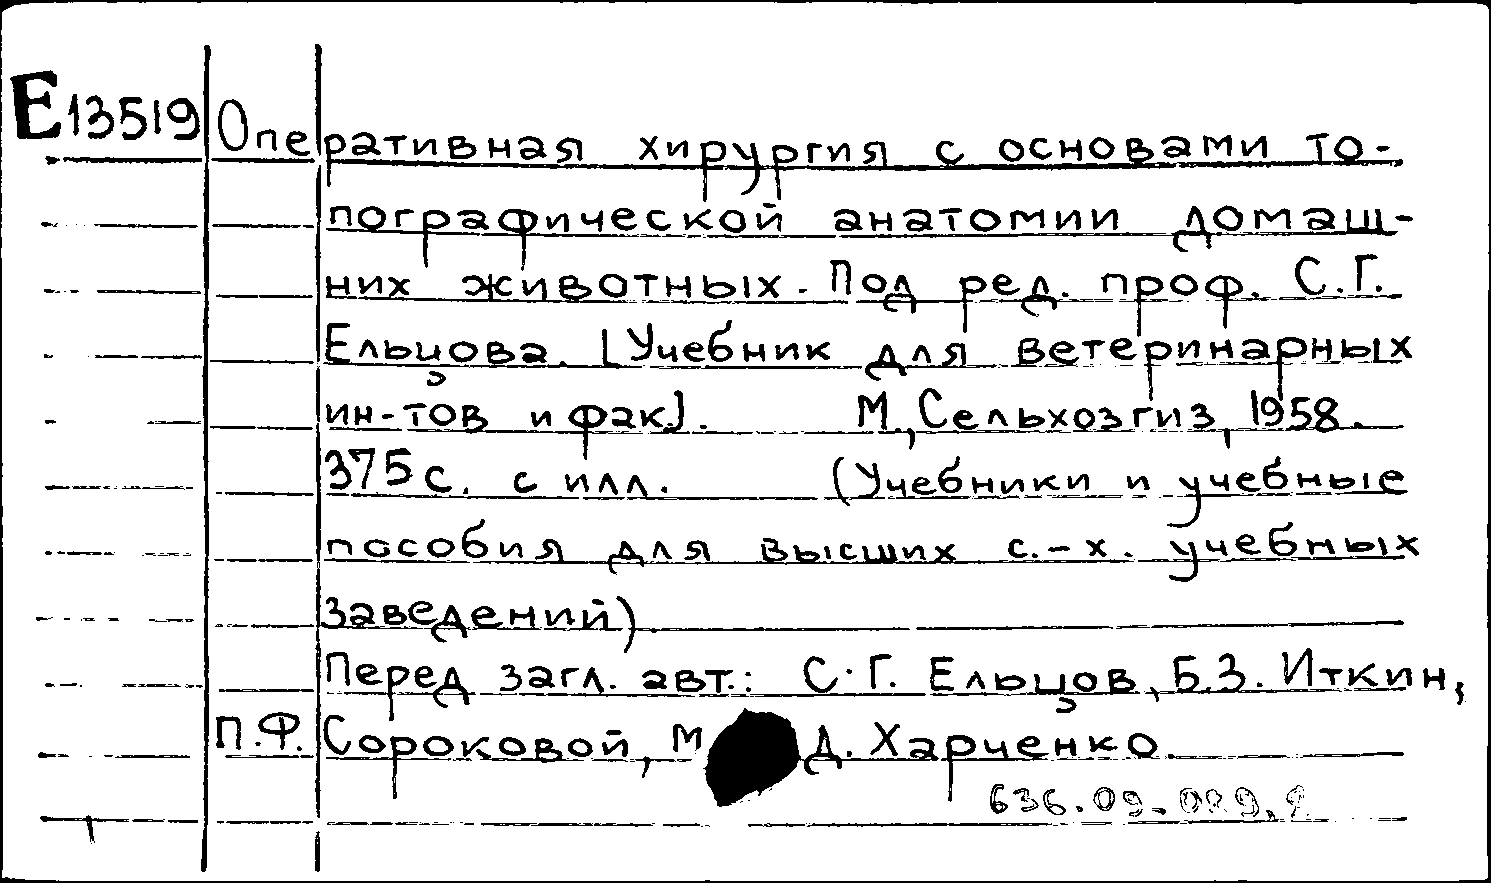 Е13519 Оперативная хирургия с основами то-
пографической анатомии домаш-
них животных. Под ред. проф. С.Г.
Ельцова. [Учебник для ветеринарных
ин-тов и фак.]. М., Сельхозгиз, 1958.
375 с. с илл. (Учебники и учебные
пособия для высших с.-х. учебных
заведений)
Перед загл. авт.: С.Г. Ельцов, Б.З. Иткин,
П.Ф. Сороковой, М Д. Харченко.